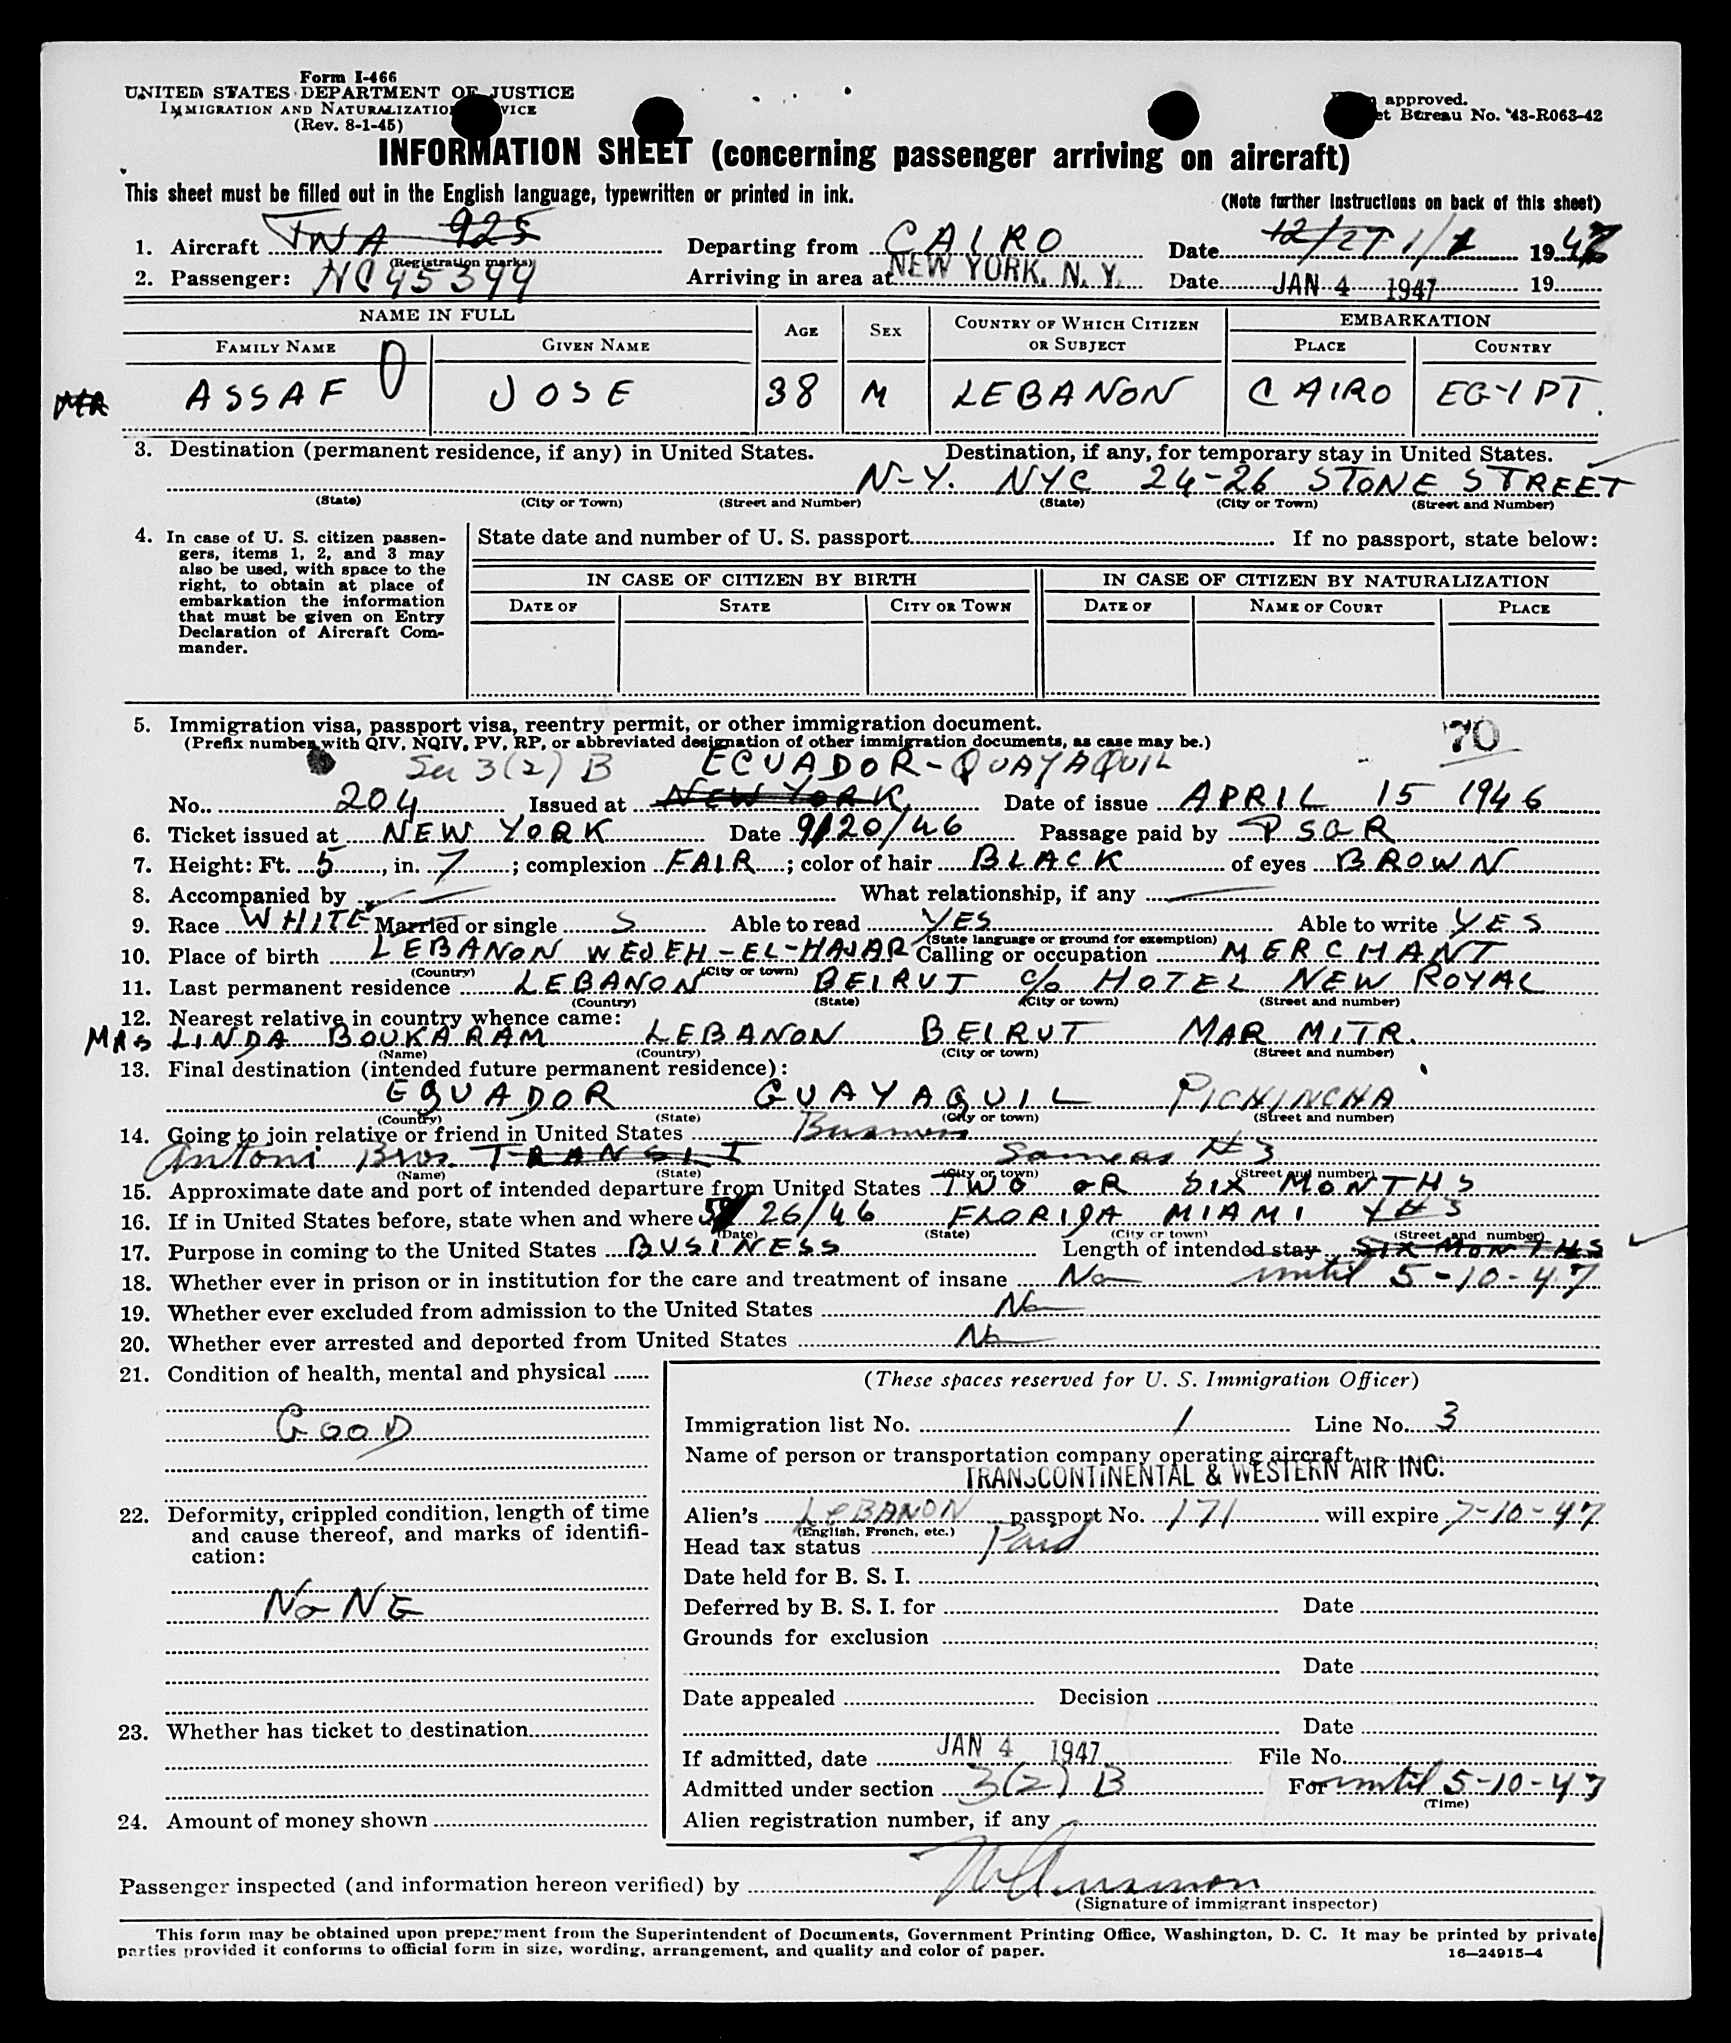 Form I-466
UNITED STATES DEPARTMENT OF JUSTICE
IMMIGRATION AND NATURALIZATION SERVICE
(Rev. 8-1-45)
approved.
et Bureau No. 43-R063-42
INFORMATION SHEET (concerning passenger arriving on aircraft)
This sheet must be filled out in the English language, typewritten or printed in ink.
(Note further instructions on back of this sheet)
1. Aircraft TWA 925 Departing from CAIRO Date 12/27 1/1 1947
(Registration marks)
2. Passenger: NC45344 Arriving in area at NEW YORK, N. Y. Date JAN 4 1947 19
NAME IN FULL AGE SEX COUNTRY OF WHICH CITIZEN OR SUBJECT EMBARKATION
FAMILY NAME GIVEN NAME PLACE COUNTRY
ASSAF JOSE 38 M LEBANON CAIRO EGYPT.
3. Destination (permanent residence, if any) in United States. Destination, if any, for temporary stay in United States.
N-Y. NYC 24-26 STONE STREET
(State) (City or Town) (Street and Number) (State) (City or Town) (Street and Number)
4. In case of U. S. citizen passengers, items 1, 2, and 3 may also be used, with space to the right, to obtain at place of embarkation the information that must be given on Entry Declaration of Aircraft Commander.
State date and number of U. S. passport If no passport, state below:
IN CASE OF CITIZEN BY BIRTH IN CASE OF CITIZEN BY NATURALIZATION
DATE OF STATE CITY OR TOWN DATE OF NAME OF COURT PLACE
5. Immigration visa, passport visa, reentry permit, or other immigration document.
(Prefix number with QIV, NQIV, PV, RP, or abbreviated designation of other immigration documents, as case may be.)
70
Sec 3(2) B ECUADOR-QUAYAQUIL
No. 204 Issued at NEW YORK Date of issue APRIL 15 1946
6. Ticket issued at NEW YORK Date 9/20/46 Passage paid by
7. Height: Ft. 5, in. 7; complexion FAIR; color of hair BLACK of eyes BROWN
8. Accompanied by What relationship, if any
9. Race WHITE Married or single S Able to read YES Able to write YES
(State language or ground for exemption)
10. Place of birth LEBANON WEJEH-EL-HAJAR Calling or occupation MERCHANT
(Country) (City or town)
11. Last permanent residence LEBANON BEIRUT c/o HOTEL NEW ROYAL
(Country) (State) (City or town) (Street and number)
12. Nearest relative in country whence came:
MRS LINDA BOUKARAM LEBANON BEIRUT MAR MITR.
(Name) (Country) (City or town) (Street and number)
13. Final destination (intended future permanent residence):
EQUADOR GUAYAQUIL PICHINCHA
(Country) (State) (City or town) (Street and number)
14. Going to join relative or friend in United States Business
Antoni Bros. Same as #3
(Name) (State) (City or town) (Street and number)
15. Approximate date and port of intended departure from United States TWO OR SIX MONTHS
16. If in United States before, state when and where 26/46 FLORIDA MIAMI
(Date) (State) (City or town) (Street and number)
17. Purpose in coming to the United States BUSINESS Length of intended stay SIX MONTHS
18. Whether ever in prison or in institution for the care and treatment of insane No until 5-10-47
19. Whether ever excluded from admission to the United States No
20. Whether ever arrested and deported from United States No
21. Condition of health, mental and physical
GOOD
22. Deformity, crippled condition, length of time and cause thereof, and marks of identification:
NONE
23. Whether has ticket to destination
24. Amount of money shown
(These spaces reserved for U. S. Immigration Officer)
Immigration list No. 1 Line No. 3
Name of person or transportation company operating aircraft
TRANSCONTINENTAL & WESTERN AIR INC.
Alien's LEBANON passport No. 171 will expire 7-10-47
(English, French, etc.)
Head tax status Paid
Date held for B. S. I.
Deferred by B. S. I. for Date
Grounds for exclusion
Date
Date appealed Decision
Date
If admitted, date JAN 4 1947 File No.
Admitted under section 3(2) B For until 5-10-47
(Time)
Alien registration number, if any
Passenger inspected (and information hereon verified) by
(Signature of immigrant inspector)
This form may be obtained upon prepayment from the Superintendent of Documents, Government Printing Office, Washington, D. C. It may be printed by private
parties provided it conforms to official form in size, wording, arrangement, and quality and color of paper.
16—24915-4